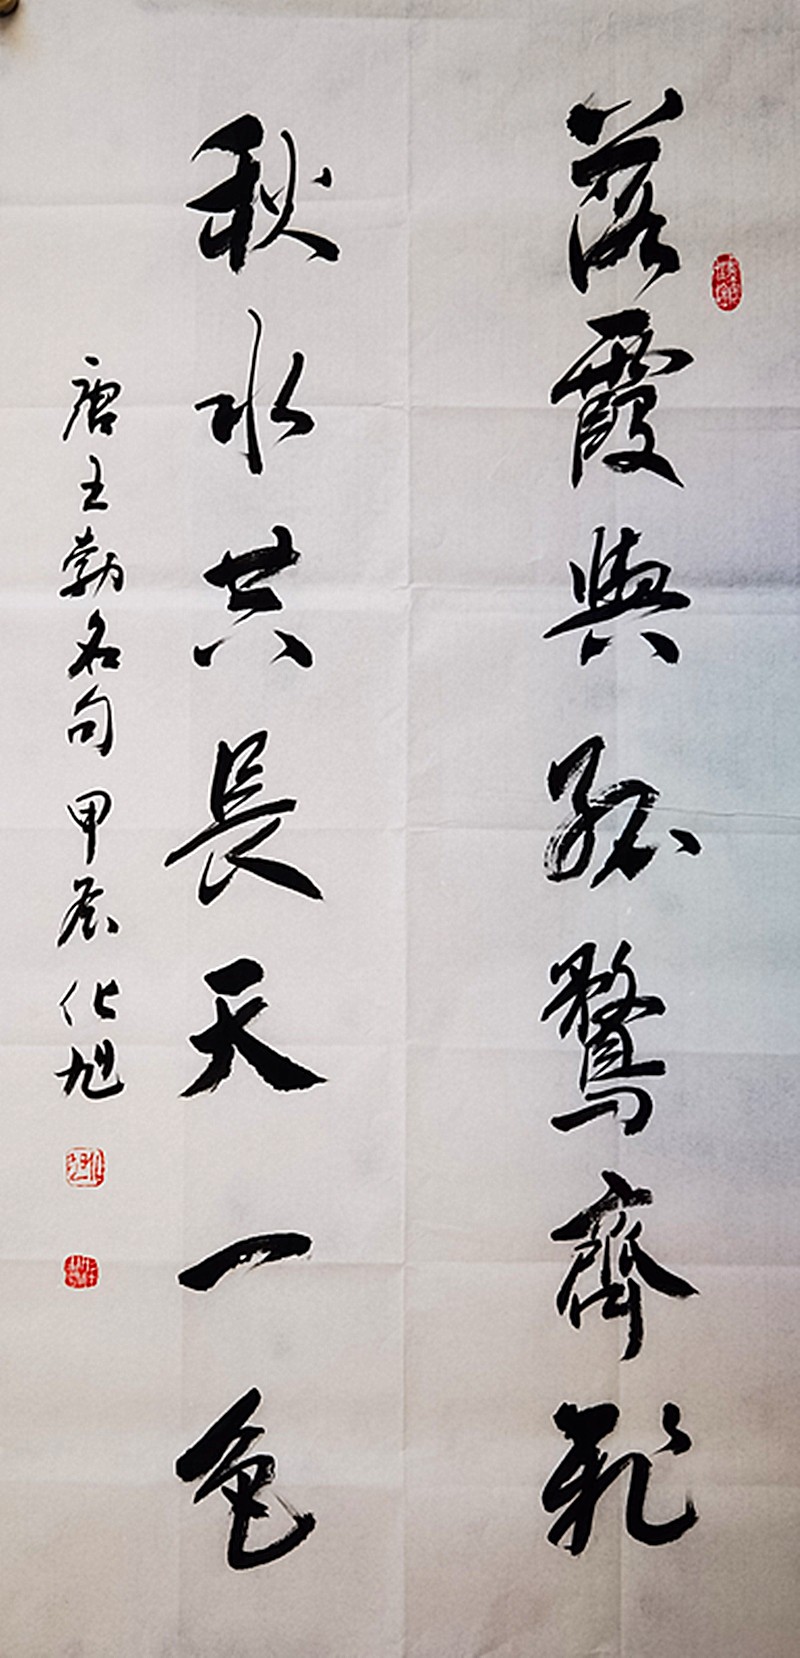 落霞與孤鶩齊飛
秋水共長天一色
唐王勃名句甲辰化旭